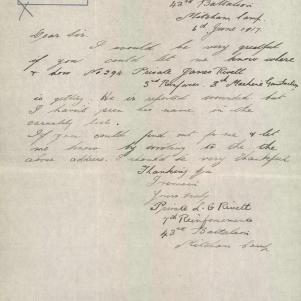 43rd Battalion
Mitcham Camp.
6th June 1917.
Dear Sir.
I would be very grateful
if you could let me know where
& how No 294 Private James Rivett
3rd Reinforce. 3rd Machine Gun Coy
is getting. He is reported wounded but
I have'nt seen his name in the
casualty list.
If you could find out for me & let
me know by writing to the the
above address. I would be very thankful
Thanking You
I remain
Yours truly
Private L. G Rivett
7th Reinforcements
43rd Battalion
Mitcham Camp